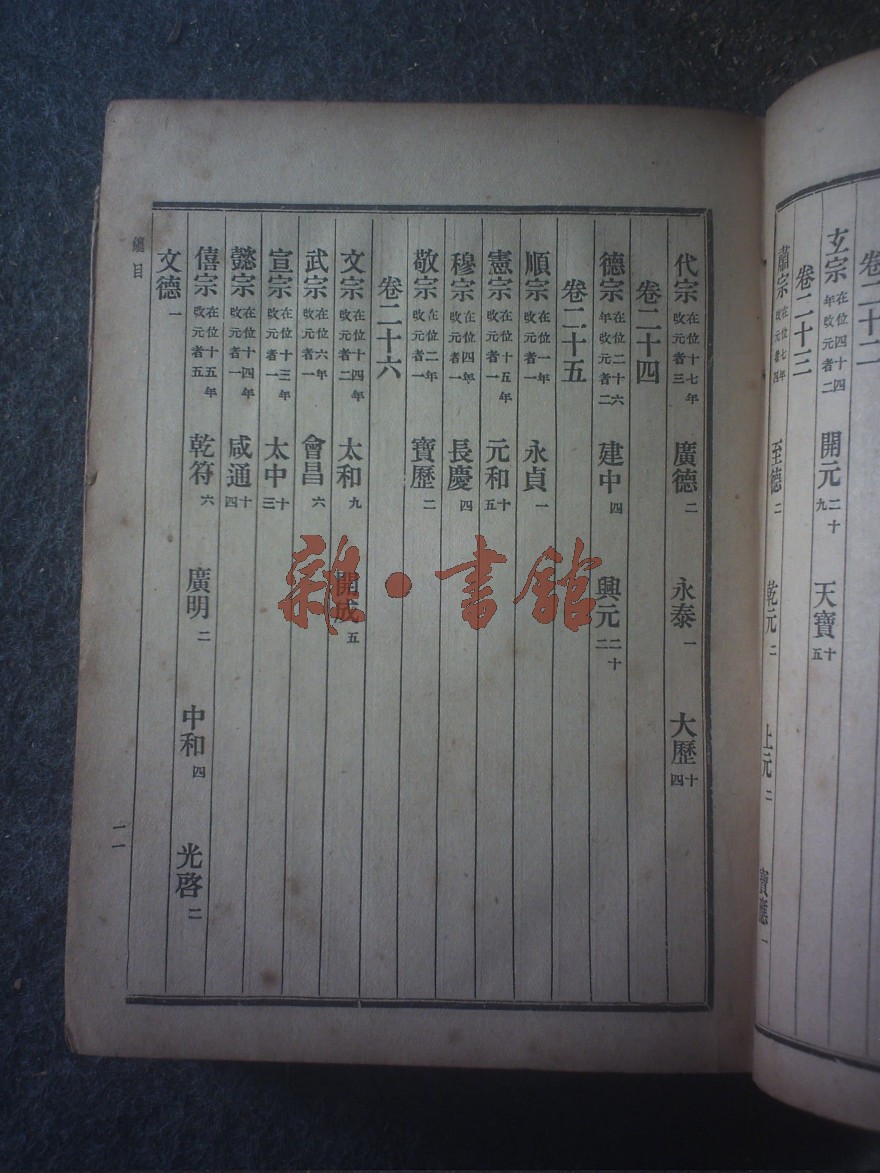 卷二十二
玄宗 在位四十四年改元者二 開元 二十九 天寶 十五
卷二十三
肅宗 在位七年改元者四 至德 二 乾元 二 上元 二 寶應 一
代宗 在位十七年改元者三 廣德 二 永泰 一 大歷 十四
卷二十四
德宗 在位二十六年改元者二 建中 四 興元 二十二
卷二十五
順宗 在位一年改元者一 永貞 一
憲宗 在位十五年改元者一 元和 十五
穆宗 在位四年改元者一 長慶 四
敬宗 在位二年改元者一 寶歷 二
卷二十六
文宗 在位十四年改元者二 太和 九 開成 五
武宗 在位六年改元者一 會昌 六
宣宗 在位十三年改元者一 太中 十三
懿宗 在位十四年改元者一 咸通 十四
僖宗 在位十五年改元者五 乾符 六 廣明 二 中和 四 光啓 二
文德 一
總目
二
雜·書館